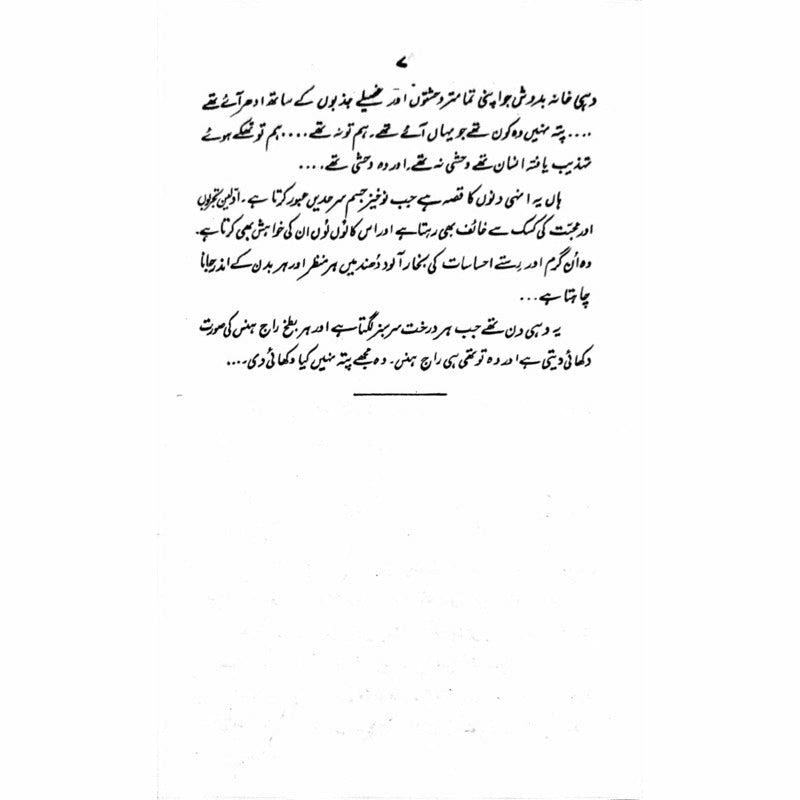 ۷
وہی خانہ بدوش جو اپنی تمام تر وحشتوں اور غصیلے جذبوں کے ساتھ ادھر آئے تھے
.... پتہ نہیں وہ کون تھے جو یہاں آئے تھے۔ ہم تو نہ تھے .... ہم تو تھکے ہوئے
تہذیب یافتہ انسان تھے وحشی نہ تھے۔ اور وہ وحشی تھے ....
ہاں یہ انہی دنوں کا قصہ ہے جب نوخیز جسم سرحدیں عبور کرتا ہے۔ اوّلین تجربوں
اور محبّت کی کسک سے خائف بھی رہتا ہے اور اس کا لُوں لُوں ان کی خواہش بھی کرتا ہے۔
وہ اُن گرم اور رِستے احساسات کی بخار آلود دُھند میں ہر منظر اور ہر بدن کے اندر جانا
چاہتا ہے ...
یہ وہی دن تھے جب ہر درخت سرسبز لگتا ہے اور ہر بطخ راج ہنس کی صورت
دکھائی دیتی ہے اور وہ تو تھی ہی راج ہنس۔ وہ مجھے پتہ نہیں کیا دکھائی دی ....